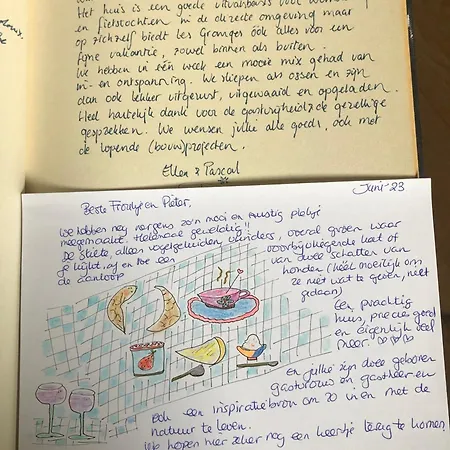 Het huis is een goede uitvalsbasis voor wandel
en fietstochten in de directe omgeving maar
op zichzelf biedt Les Granges óók alles voor een
fijne vakantie, zowel binnen als buiten.
We hebben in één week een mooie mix gehad van
in- en ontspanning. We sliepen als ossen en zijn
dan ook lekker uitgerust, uitgewaaid en opgeladen.
Heel hartelijk dank voor de gastvrijheid & de gezellige
gesprekken. We wensen jullie alle goeds, ook met
de lopende (bouw)projecten.
Ellen & Pascal
Juni-23
Beste Froukje en Pieter,
We hebben nog nergens zo'n mooi en rustig plekje
meegemaakt. Helemaal geweldig!!
De stilte, alleen vogelgeluiden, vlinders, overal groen waar
je kijkt, af en toe een voorbijvliegende kat of
de aanloop van deze schatten van
honden (héél moeilijk om
ze niet wat te geven, niet
gedaan)
Een prachtig
huis, precies goed
en eigenlijk veel
meer.
En jullie zijn deze geboren
gastvrouw en gastheer en
ook een inspiratiebron om zo in en met de
natuur te leven.
We hopen hier zeker nog een keertje terug te komen